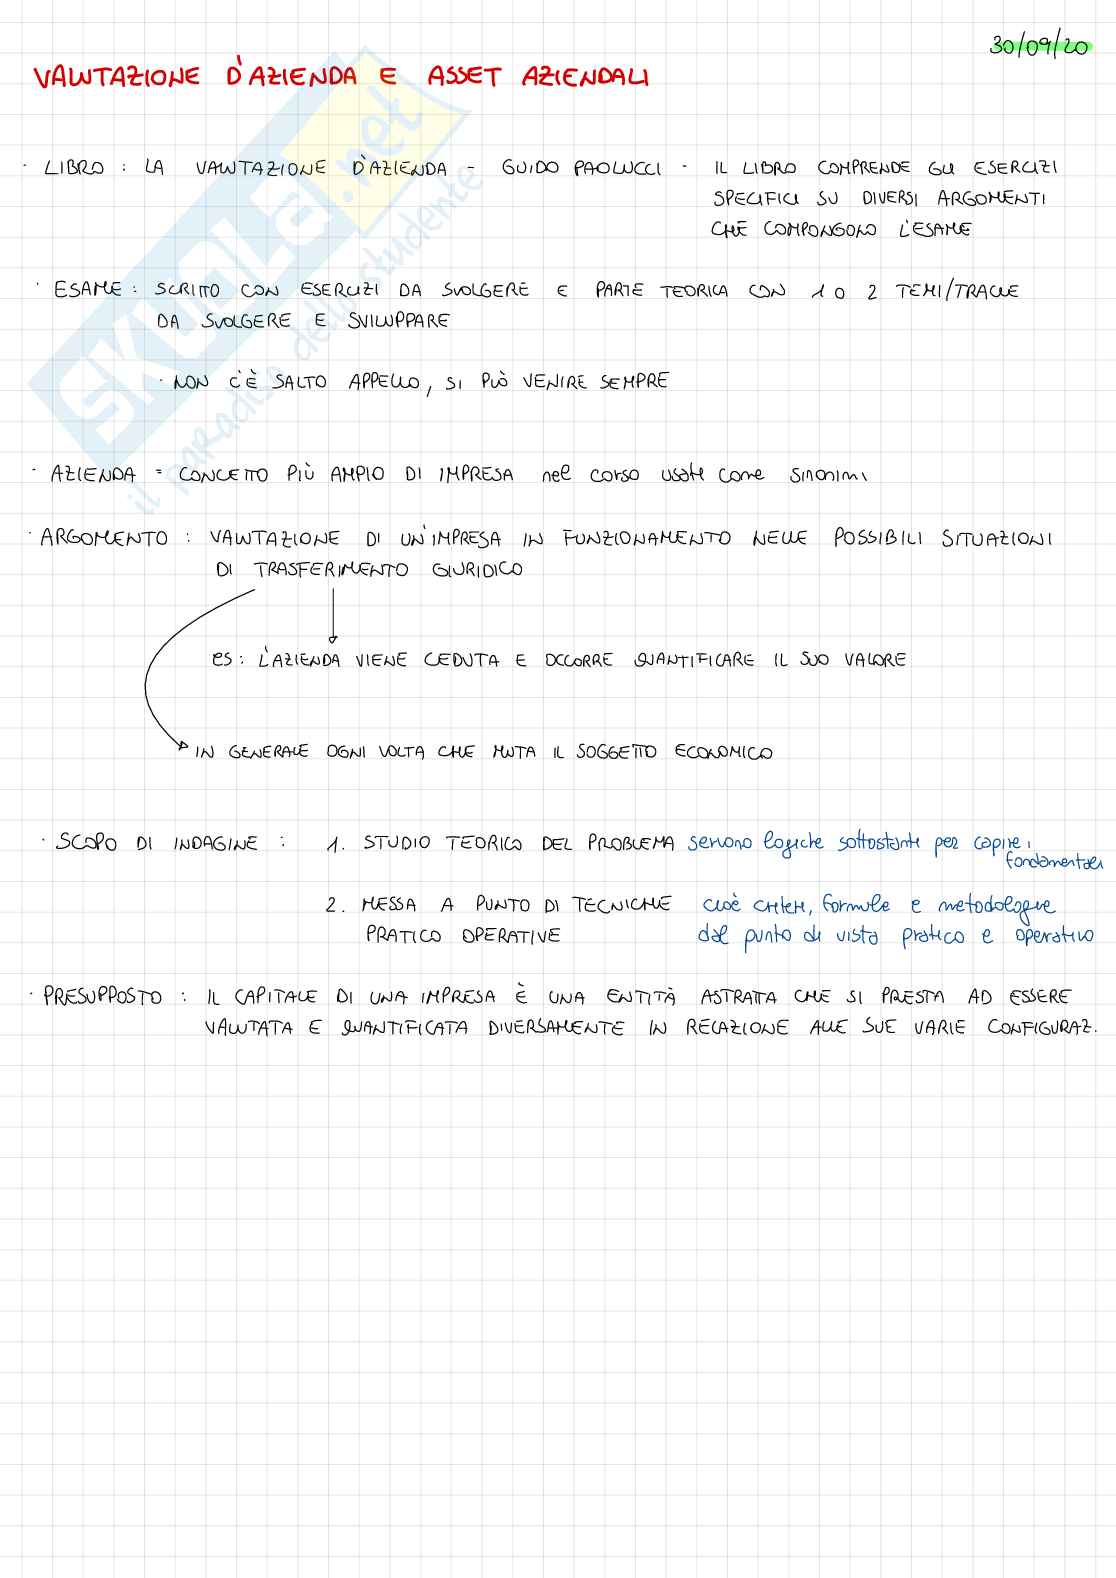 30/09/20
VALUTAZIONE D'AZIENDA E ASSET AZIENDALI
· LIBRO : LA VALUTAZIONE D'AZIENDA - GUIDO PAOLUCCI - IL LIBRO COMPRENDE GLI ESERCIZI
SPECIFICI SU DIVERSI ARGOMENTI
CHE COMPONGONO L'ESAME
· ESAME : SCRITTO CON ESERCIZI DA SVOLGERE E PARTE TEORICA CON 1 O 2 TEMI/TRACCE
DA SVOLGERE E SVILUPPARE
· NON C'È SALTO APPELLO, SI PUÒ VENIRE SEMPRE
· AZIENDA = CONCETTO PIÙ AMPIO DI IMPRESA nel corso usate come sinonimi
· ARGOMENTO : VALUTAZIONE DI UN'IMPRESA IN FUNZIONAMENTO NELLE POSSIBILI SITUAZIONI
DI TRASFERIMENTO GIURIDICO
es : L'AZIENDA VIENE CEDUTA E OCCORRE QUANTIFICARE IL SUO VALORE
IN GENERALE OGNI VOLTA CHE MUTA IL SOGGETTO ECONOMICO
· SCOPO DI INDAGINE : 1. STUDIO TEORICO DEL PROBLEMA servono logiche sottostanti per capire i
fondamentali
2. MESSA A PUNTO DI TECNICHE cioè criteri, formule e metodologie
PRATICO OPERATIVE dal punto di vista pratico e operativo
· PRESUPPOSTO : IL CAPITALE DI UNA IMPRESA È UNA ENTITÀ ASTRATTA CHE SI PRESTA AD ESSERE
VALUTATA E QUANTIFICATA DIVERSAMENTE IN RELAZIONE ALLE SUE VARIE CONFIGURAZ.
SKUOLA.net
il paradiso dello studente